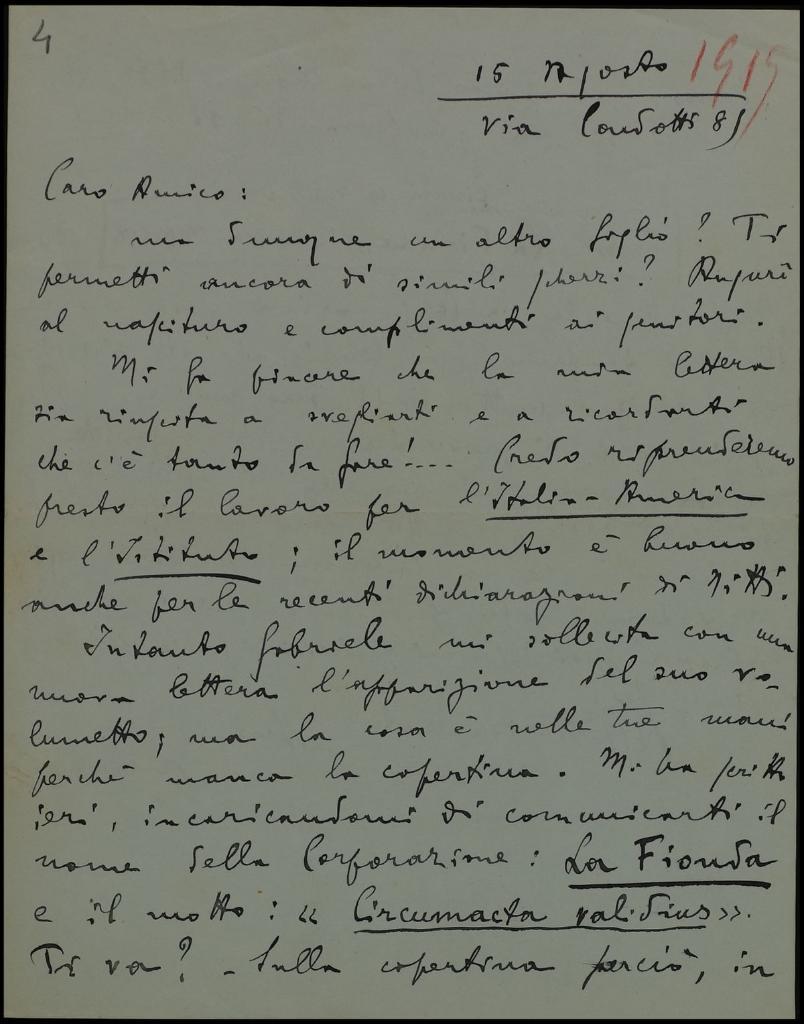 4
15 Agosto 1919
Via Condotti 85
Caro Amico:
ma dunque un altro figlio? Ti
permetti ancora di simili scherzi? Auguri
al nascituro e complimenti ai genitori.
Mi fa piacere che la mia lettera
sia riuscita a svegliarti e a ricordarti
che c'è tanto da fare!... Credo riprenderemo
presto il lavoro per l'Italia-America
e l'Istituto; il momento è buono
anche per le recenti dichiarazioni di Nitti.
Intanto Gabriele mi sollecita con una
nuova lettera l'apparizione del suo vo-
lumetto; ma la cosa è nelle tue mani
perchè manca la copertina. Mi ha scritto
ieri, incaricandomi di comunicarti il
nome della Corporazione: La Fionda
e il motto: « Circumacta validius».
Ti va? - Sulla copertina perciò, in